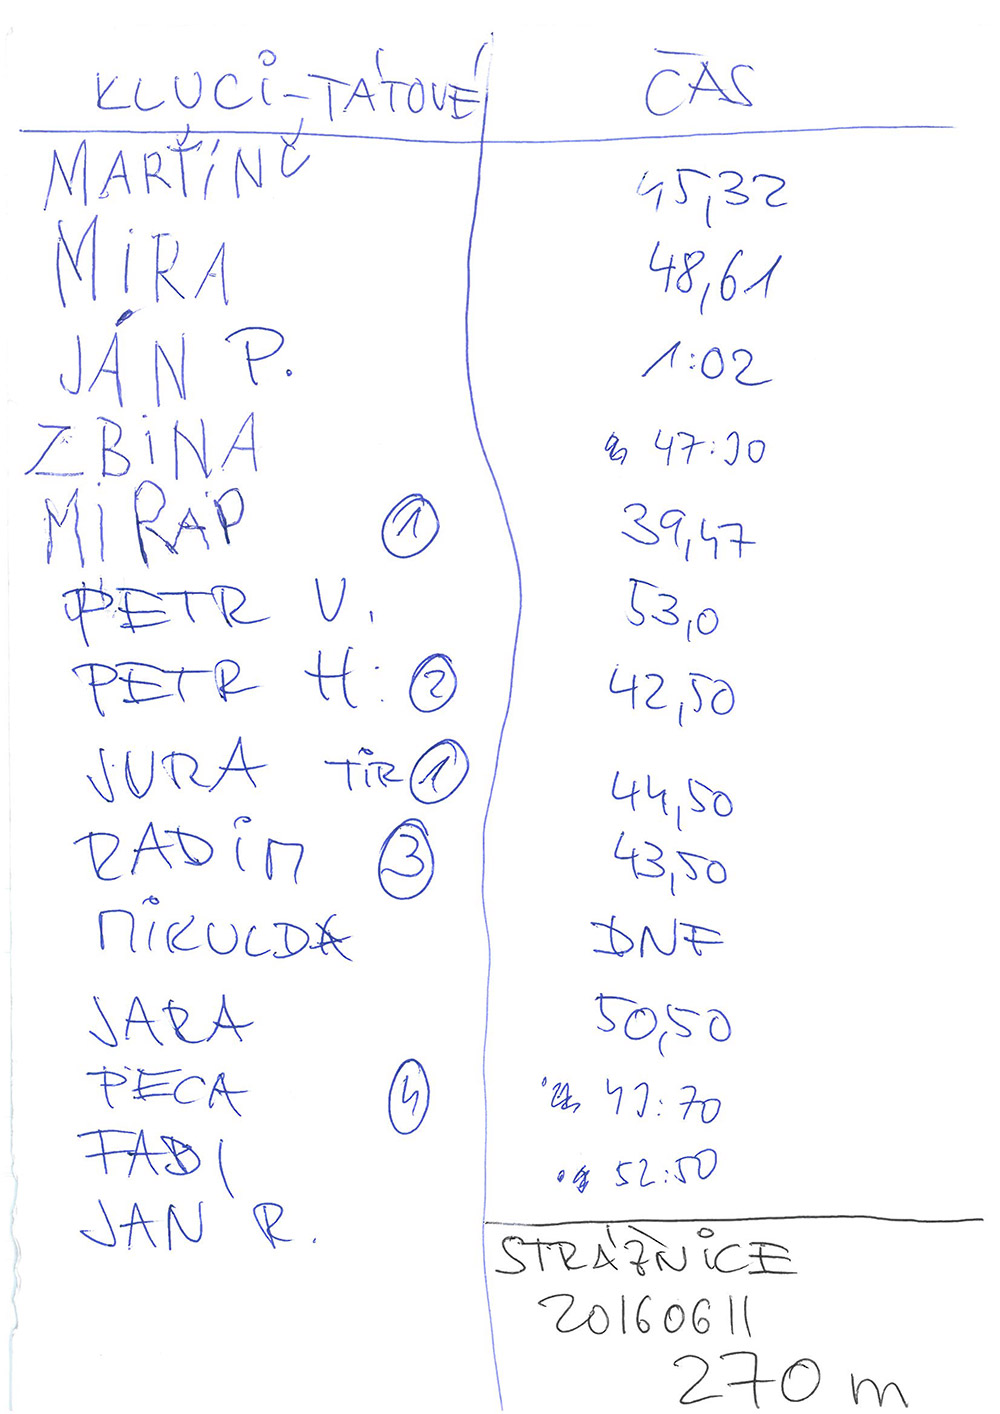 KLUCI-TÁTOVÉ ČAS
MARTÍN 45,32
MIRA 48,61
JÁN P. 1:02
ZBINA 47:30
MIRAP 1 39,47
PETR V. 53,0
PETR H. 2 42,50
JURA TIR 1 44,50
RADIM 3 43,50
MIKULDA DNF
JARA 50,50
PECA 4 43:70
FABI 52:50
JAN R.
STRÁŽNICE
20160611
270 m